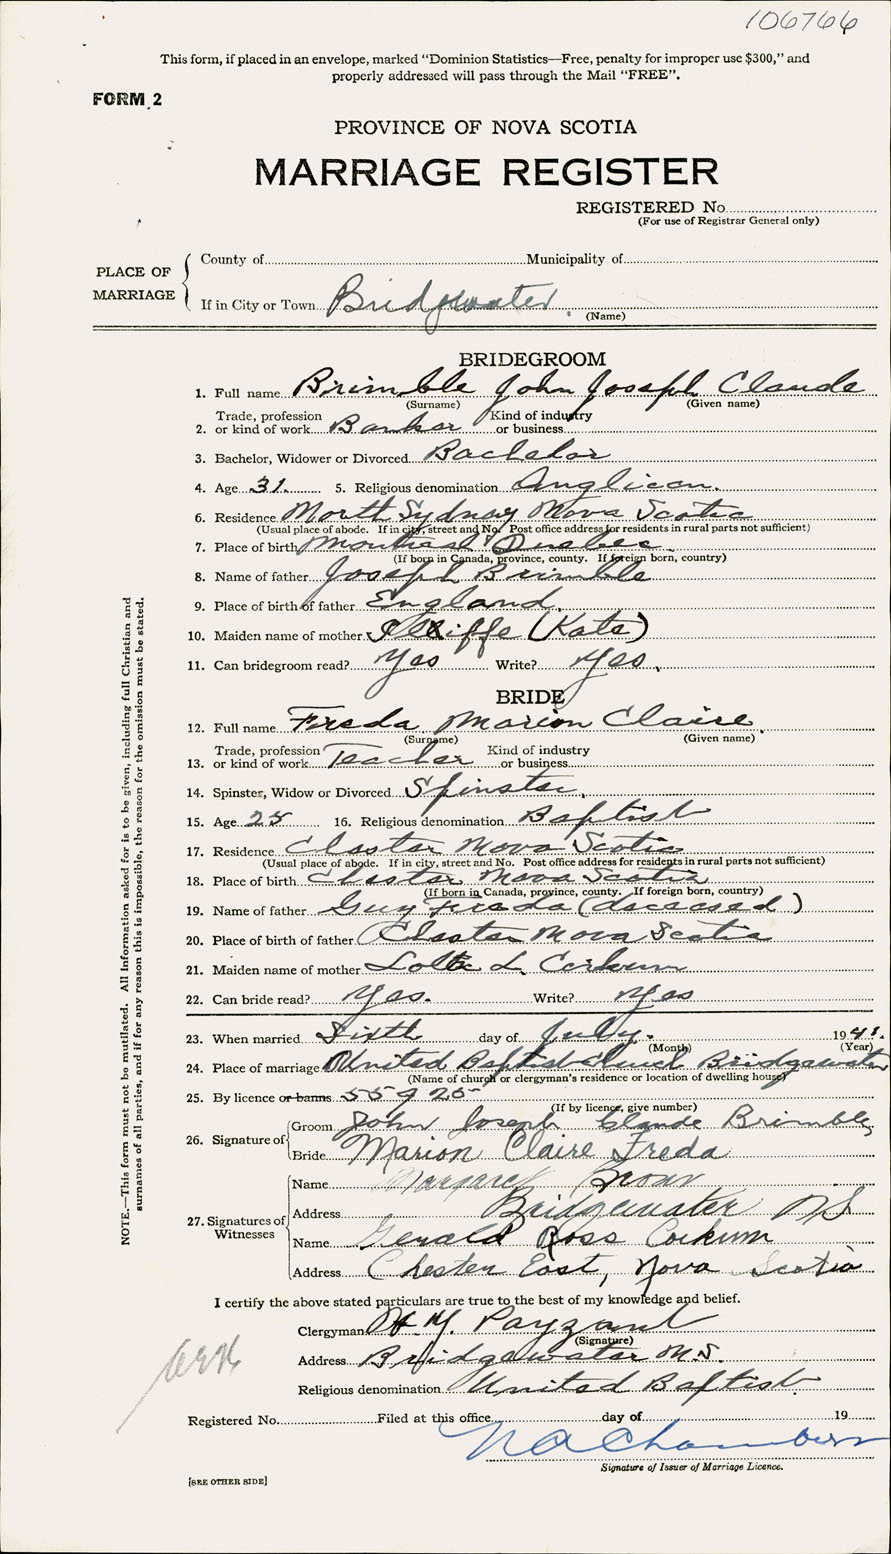 106766
This form, if placed in an envelope, marked "Dominion Statistics—Free, penalty for improper use $300," and
properly addressed will pass through the Mail "FREE".
FORM 2
PROVINCE OF NOVA SCOTIA
MARRIAGE REGISTER
REGISTERED No.
(For use of Registrar General only)
PLACE OF MARRIAGE
County of Municipality of
If in City or Town Bridgewater
(Name)
BRIDEGROOM
1. Full name Brimble John Joseph Claude
(Surname) (Given name)
Trade, profession Kind of industry
2. or kind of work Banker or business
3. Bachelor, Widower or Divorced Bachelor
4. Age 31 5. Religious denomination Anglican.
6. Residence North Sydney Nova Scotia
(Usual place of abode. If in city, street and No. Post office address for residents in rural parts not sufficient)
7. Place of birth Montreal Quebec
(If born in Canada, province, county. If foreign born, country)
8. Name of father Joseph Brimble
9. Place of birth of father England
10. Maiden name of mother (Kate)
11. Can bridegroom read? Yes Write? Yes.
BRIDE
12. Full name Freda Marion Claire
(Surname) (Given name)
Trade, profession Kind of industry
13. or kind of work Teacher or business
14. Spinster, Widow or Divorced Spinster.
15. Age 25 16. Religious denomination Baptist
17. Residence Chester Nova Scotia
(Usual place of abode. If in city, street and No. Post office address for residents in rural parts not sufficient)
18. Place of birth Chester Nova Scotia
(If born in Canada, province, county. If foreign born, country)
19. Name of father Guy Freda (deceased)
20. Place of birth of father Chester Nova Scotia
21. Maiden name of mother L. Corkum
22. Can bride read? Yes. Write? Yes
23. When married Sixth day of July. 1941.
(Month) (Year)
24. Place of marriage United Baptist Church Bridgewater
(Name of church or clergyman's residence or location of dwelling house)
25. By licence or banns 55925
(If by licence, give number)
26. Signature of
Groom John Joseph Claude Brimble
Bride Marion Claire Freda
27. Signatures of Witnesses
Name Margaret
Address Bridgewater NS
Name Gerald Ross Corkum
Address Chester East, Nova Scotia
I certify the above stated particulars are true to the best of my knowledge and belief.
Clergyman Payzant
(Signature)
Address Bridgewater N.S.
Religious denomination United Baptist
Registered No. Filed at this office day of 19
Chambers
Signature of Issuer of Marriage Licence.
[SEE OTHER SIDE]
NOTE.—This form must not be mutilated. All information asked for is to be given, including full Christian and
surnames of all parties, and if for any reason this is impossible, the reason for the omission must be stated.